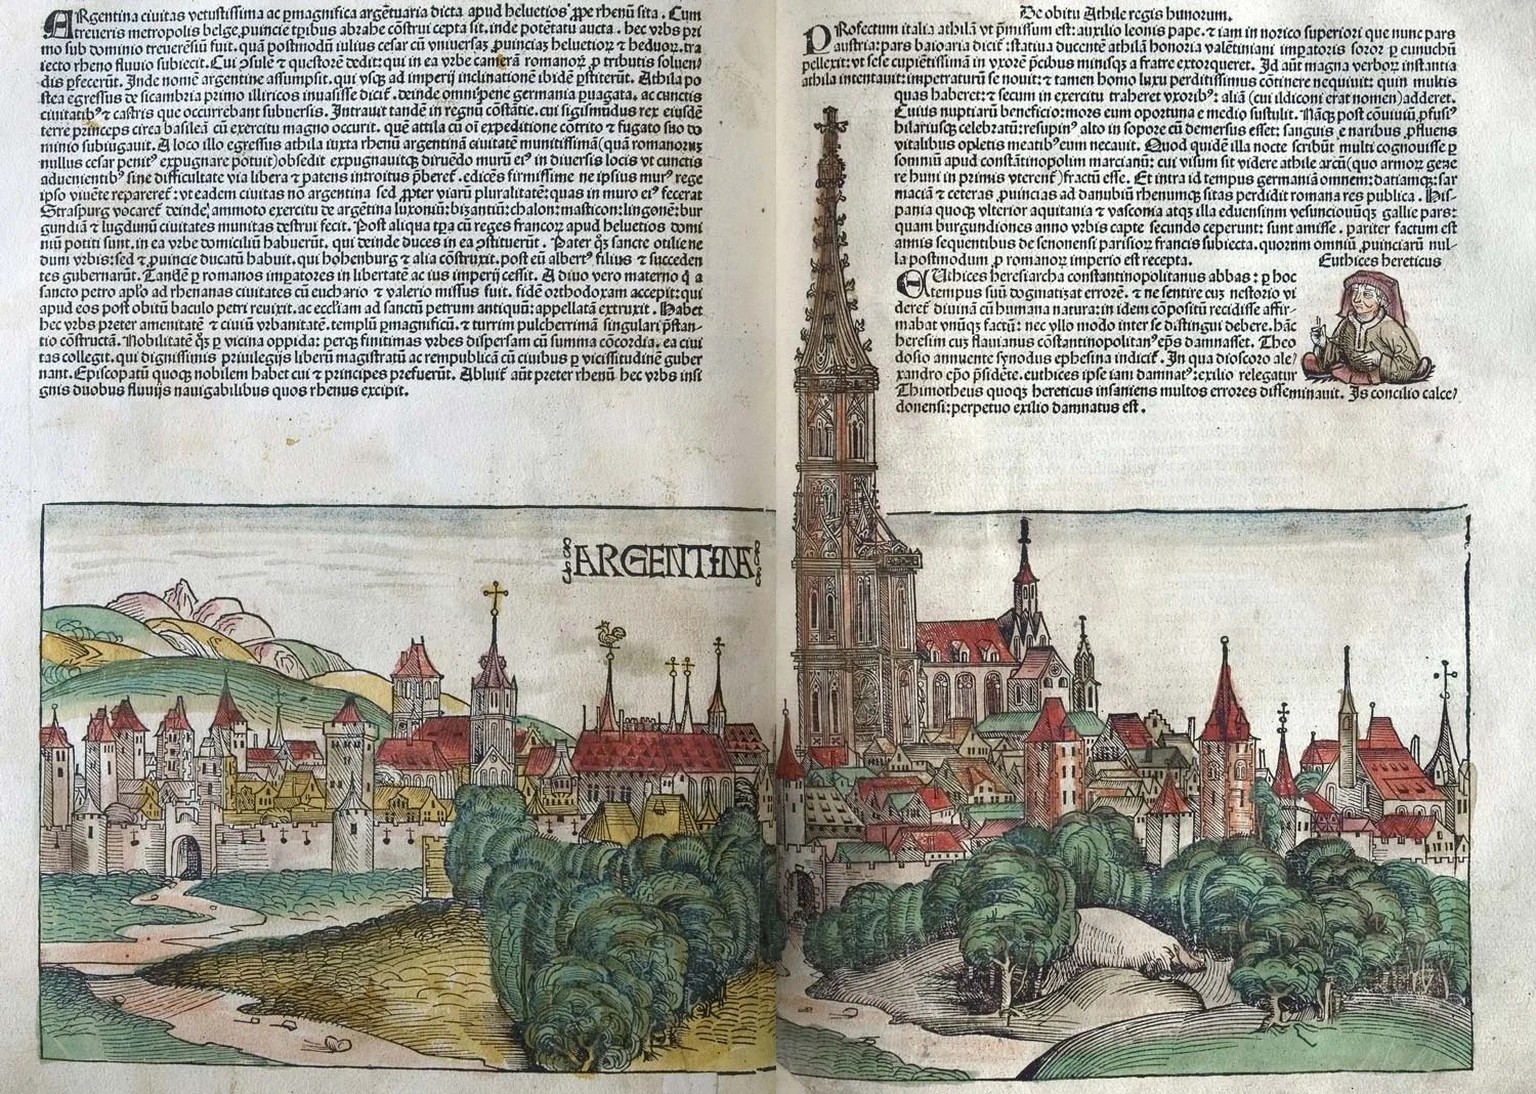 ARgentina ciuitas vetustissima ac ꝑmagnifica argẽtuaria dicta apud heluetios ꝓpe rhenũ sita. Cum
atreueris metropolis belge ꝓuincie tꝑibus abrahe cõstrui cepta sit. inde potẽtatu aucta. hec vrbs pri
mo sub dominio treuerẽsiũ fuit. quã postmodũ iulius cesar cũ vniuersas ꝓuincias heluetioꝝ ⁊ heduoꝝ. tra
iecto rheno fluuio subiecit. Cui ↄsulẽ ⁊ questorẽ dedit: qui in ea vrbe camerã romanoꝝ ꝓ tributis soluen/
dis ꝑfecerũt. Inde nomẽ argentine assumpsit. qui vsqꝫ ad imperij inclinationẽ ibidẽ ꝑstiterũt. Athila po
stea egressus de sicambria primo illiricos inuasisse dicit᷑. deinde omnẽ pene germania ꝑuagata. ac cunctis
ciuitatibꝰ ⁊ castris que occurrebant subuersis. Intrauit tandẽ in regnũ cõstãtie. cui sigismũdus rex eiusdẽ
terre princeps circa basileã cũ exercitu magno occurit. quẽ attila cũ oĩ expeditione cõtrito ⁊ fugato suo do
minio subiugauit. A loco illo egressus athila iuxta rhenũ argentinã ciuitatẽ munitissimã(quã romanoꝝ
nullus cesar penitꝰ expugnare potuit)obsedit expugnauitqꝫ diruẽdo murũ eiꝰ in diuersis locis vt cunctis
aduenientibꝰ sine difficultate via libera ⁊ patens introitus p̃beret᷑. edicẽs firmissime ne ipsius murꝰ rege
ipso viuẽte repareret᷑: vt eadem ciuitas nõ argentina sed ꝓpter viarũ pluralitatẽ: quas in muro eiꝰ fecerat
Straspurg vocaret᷑ deinde, ammoto exercitu de argẽtina luxoniũ: bizantiũ: chalon: masticon: lingonẽ: bur
gundiã ⁊ lugdunũ ciuitates munitas destrui fecit. Post aliqua tꝑa cũ reges francoꝝ apud heluetios domi
niũ potiti sunt. in ea vrbe domiciliũ habuerũt. qui deinde duces in ea ↄstituerũt. Pater qꝫ sancte otilie ne
dum vrbis: sed ⁊ ꝓuincie ducatũ habuit. qui hohenburg ⁊ alia cõstruxit. post eũ albertꝰ filius ⁊ succeden
tes gubernarũt. Tandẽ ꝑ romanos imꝑatores in libertatẽ ac ius imperij cessit. A diuo vero materno q̃ a
sancto petro aplo ad rhenanas ciuitates cũ euchario ⁊ valerio missus fuit. fidẽ orthodoxam accepit: qui
apud eos post obitũ baculo petri reuixit. ac eccliam ad sanctũ petrum antiquũ: appellatã extruxit. Habet
hec vrbs preter amenitatẽ ⁊ ciuiũ vrbanitatẽ. templũ ꝑmagnificũ. ⁊ turrim pulcherrimã singulari p̃stan-
tio cõstructã. Nobilitatẽ qꝫ ꝑ vicina oppida: ꝑerqꝫ finitimas vrbes dispersam cũ summa cõcordia. ea ciui
tas collegit. qui dignissimis priuilegijs liberũ magistratũ ac rempublicã cũ ciuibus ꝑ vicissitudinẽ guber
nant. Episcopatũ quoqꝫ nobilem habet cui ⁊ principes prefuerũt. Abluit᷑ aũt preter rhenũ hec vrbs insi
gnis duobus fluuijs nauigabilibus quos rhenus excipit.
ARGENTINA
De obitu Athile regis hunorum.
PRofectum italia athilã vt p̃missum est: auxilio leonis pape. ⁊ iam in norico superiori que nunc pars
austria: pars baioaria dicit᷑: statiua ducentẽ athilã honoria valẽtiniani imꝑatoris soror ꝑ eunuchũ
pellexit: vt sese cupiẽtissimã in vxorẽ p̃cibus minisqꝫ a fratre extorqueret. Id aũt magna verboꝝ instantia
athila intentauit: impetraturũ se nouit: ⁊ tamen homo luxu perditissimus cõtinere nequiuit: quin multis
quas haberet: ⁊ secum in exercitu traheret vxoribꝰ: aliã (cui ildiconi erat nomen)adderet.
Cuius nuptiarũ beneficio: mors eum oportuna e medio sustulit. Nãqꝫ post cõuiuiũ ꝓfusiꝰ
hilariusqꝫ celebratũ: resupinꝰ alto in sopore cũ demersus esset: sanguis e naribus ꝓfluens
vitalibus opletis meatibꝰ eum necauit. Quod quidẽ illa nocte scribũt multi cognouisse ꝑ
somniũ apud constãtinopolim marcianũ: cui visum sit videre athile arcũ(quo armoꝝ gene
re huni in primis vterent᷑)fractũ esse. Et intra id tempus germaniã omnem: datiamqꝫ: sar
maciã ⁊ ceteras ꝓuincias ad danubiũ rhenumqꝫ sitas perdidit romana res publica. His-
pania quoqꝫ vlterior aquitania ⁊ vasconia atqꝫ illa eduensium vesunciouũqꝫ gallie pars:
quam burgundiones anno vrbis capte secundo ceperunt: sunt amisse. pariter factum est
annis sequentibus de senonensi parisioꝝ francis subiecta. quorum omniũ ꝓuinciarũ nul-
la postmodum ꝓ romanoꝝ imperio est recepta.
Euthices hereticus
EUthices heresiarcha constantinopolitanus abbas: ꝑ hoc
tempus suũ dogmatizat errorẽ. ⁊ ne sentire cuꝫ nestorio vi
deret᷑ diuinã cũ humana natura: in idem cõpositũ recidisse affir-
mabat vnũqꝫ factũ: nec vllo modo inter se distingui debere. hãc
heresim cuꝫ flauianus cõstantinopolitanꝰ ep̃s damnasset. Theo
dosio annuente synodus ephesina indicit᷑. In qua dioscoro ale/
xandro ep̃o p̃sidẽte. euthices ipse iani damnatꝰ: exilio relegatur
Thimotheus quoqꝫ hereticus insaniens multos errores disseminauit. Is concilio calce/
donensi: perpetuo exilio damnatus est.